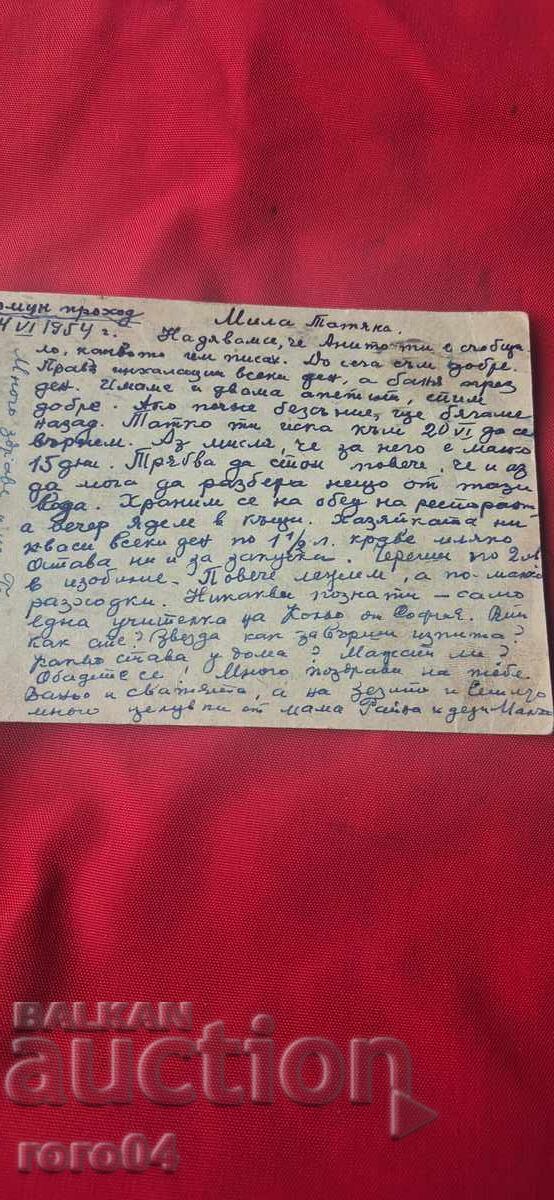 проход
VI 1954 г.
Мила Татяна.
Надявам се, че Анито ти е съобщи-
ло, каквото съм писал. До сега съм добре.
Правя инхалации всеки ден, а баня през
ден. Имаме и двама апетит, спим
добре. Ако почне безсъние, ще бягаме
назад. Татко ти иска към 20 VI да се
върнем. Аз мисля, че за него е малко
15 дни. Трябва да стои повече, че и аз
да мога да разбера нещо от тази
вода. Храним се на обед на ресторант
а вечер ядем в къщи. Хазяйката ни
кваси всеки ден по 1 1/2 л. краве мляко
остава ни и за закуска. Череши по 2 лв
в изобилие. Повече лежим, а по-малко
разходки. Никакви познати – само
една учителка на от София.
как сте? Звезда как завърши изпита?
Какво става у дома? ли?
Обадете се! Много поздрави на тебе.
и сватята, а на зетто и
много целувки от мама Райна и
Много здраве
BALKAN
auction
roro04